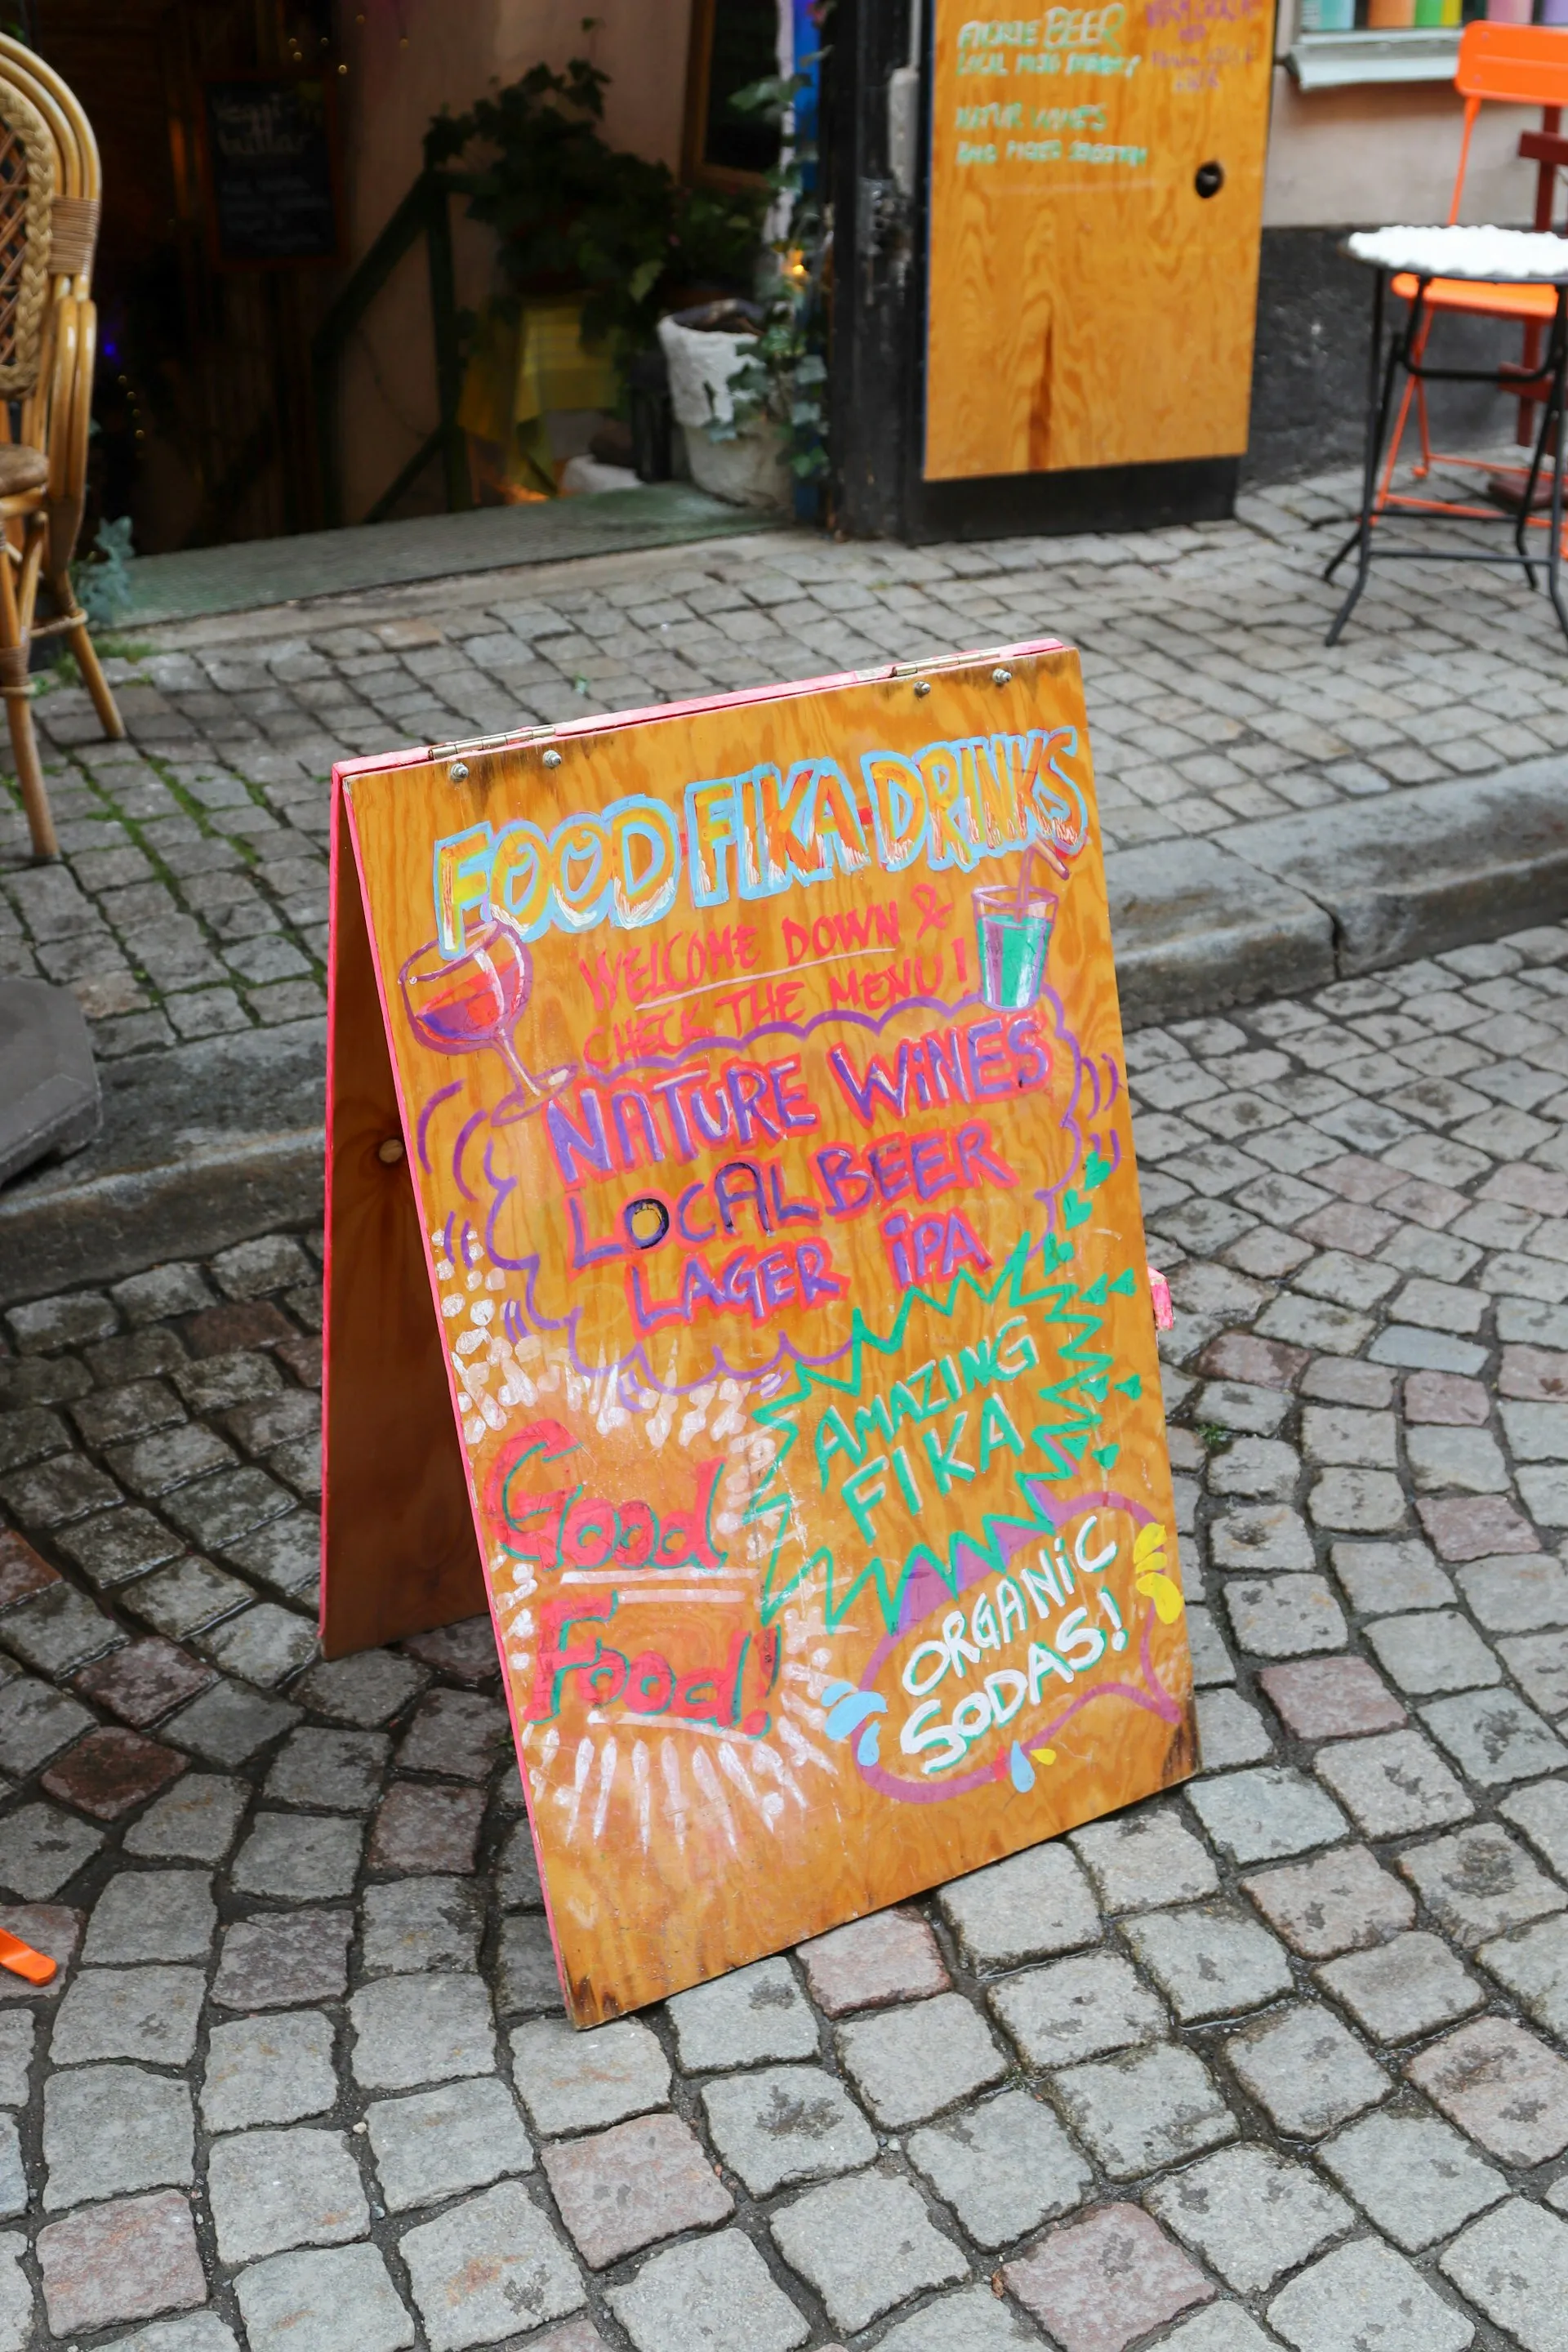 BEER
FOOD FIKA DRINKS
WELCOME DOWN &
CHECK THE MENU!
NATURE WINES
LOCAL BEER
LAGER iPA
AMAZING
FIKA
Good
Food!
ORGANiC
SODAS!